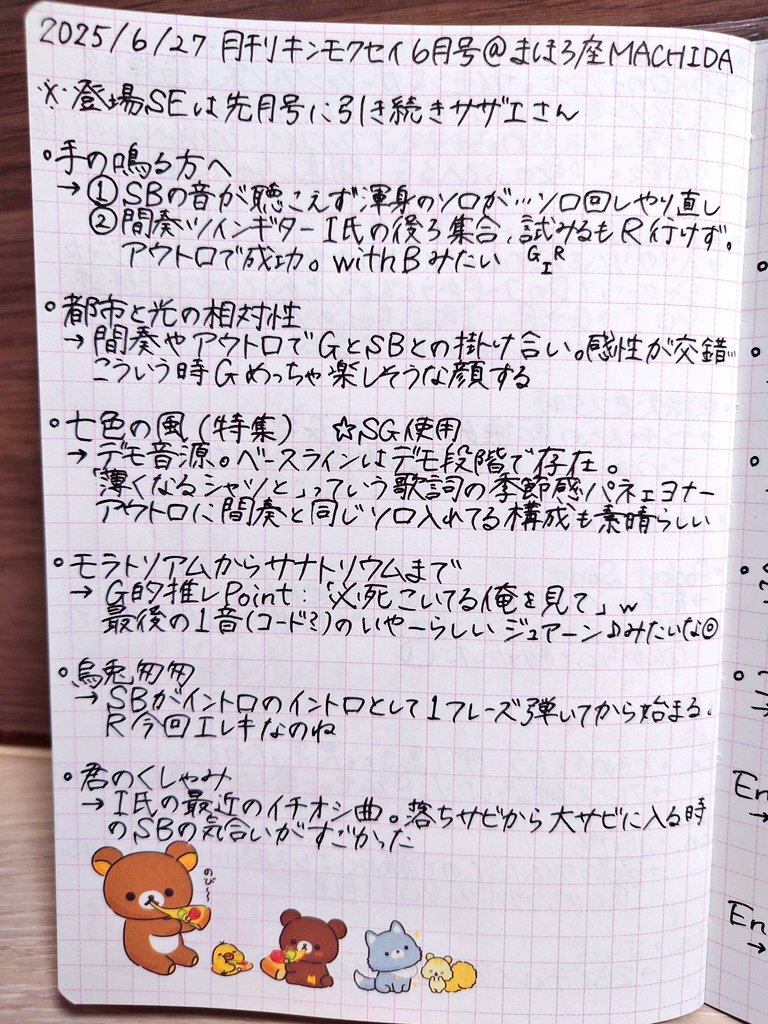 2025/6/27 月刊キンモクセイ6月号@まほろ座MACHIDA
※登場SEは先月号に引き続きサザエさん
○手の鳴る方へ
→①SBの音が聴こえず渾身のソロが…ソロ回しやり直し
②間奏ツインギターI氏の後ろ集合、試みるもR行けず。
アウトロで成功。withBみたい GIR
○都市と光の相対性
→間奏やアウトロでGとSBとの掛け合い。感性が交錯…
こういう時Gめっちゃ楽しそうな顔する
○七色の風(特集) ☆SG使用
→デモ音源。ベースラインはデモ段階で存在。
「薄くなるシャツと」っていう歌詞の季節感パネェヨナー
アウトロに間奏と同じソロ入れてる構成も素晴らしい
○モラトリアムからサナトリウムまで
→G的推しPoint:「必死こいてる俺を見て」w
最後の1音(コード?)のいやーらしいジュアーン♪みたいな◎
○烏兎匆匆
→SBがイントロのイントロとして1フレーズ弾いてから始まる。
R今回エレキなのね
○君のくしゃみ
→I氏の最近のイチオシ曲。落ちサビから大サビに入る時
のSBの気合いがすごかった
のび〜〜
En
→
En
→